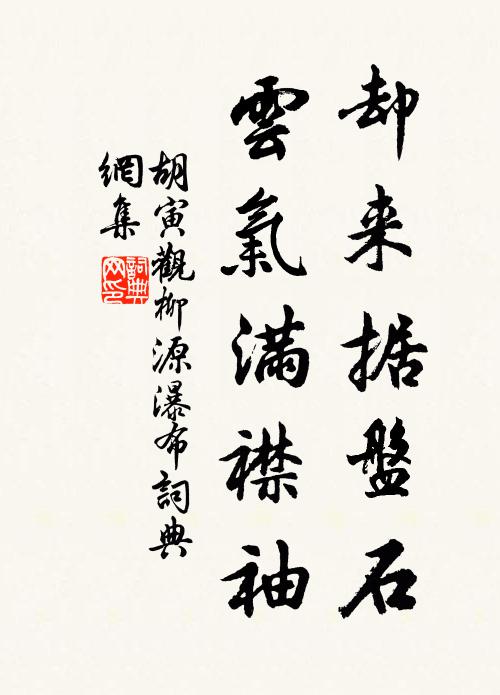 却来据盤石
雲氣滿襟袖
胡寅觀柳源瀑布詞典
網集
詞典網印